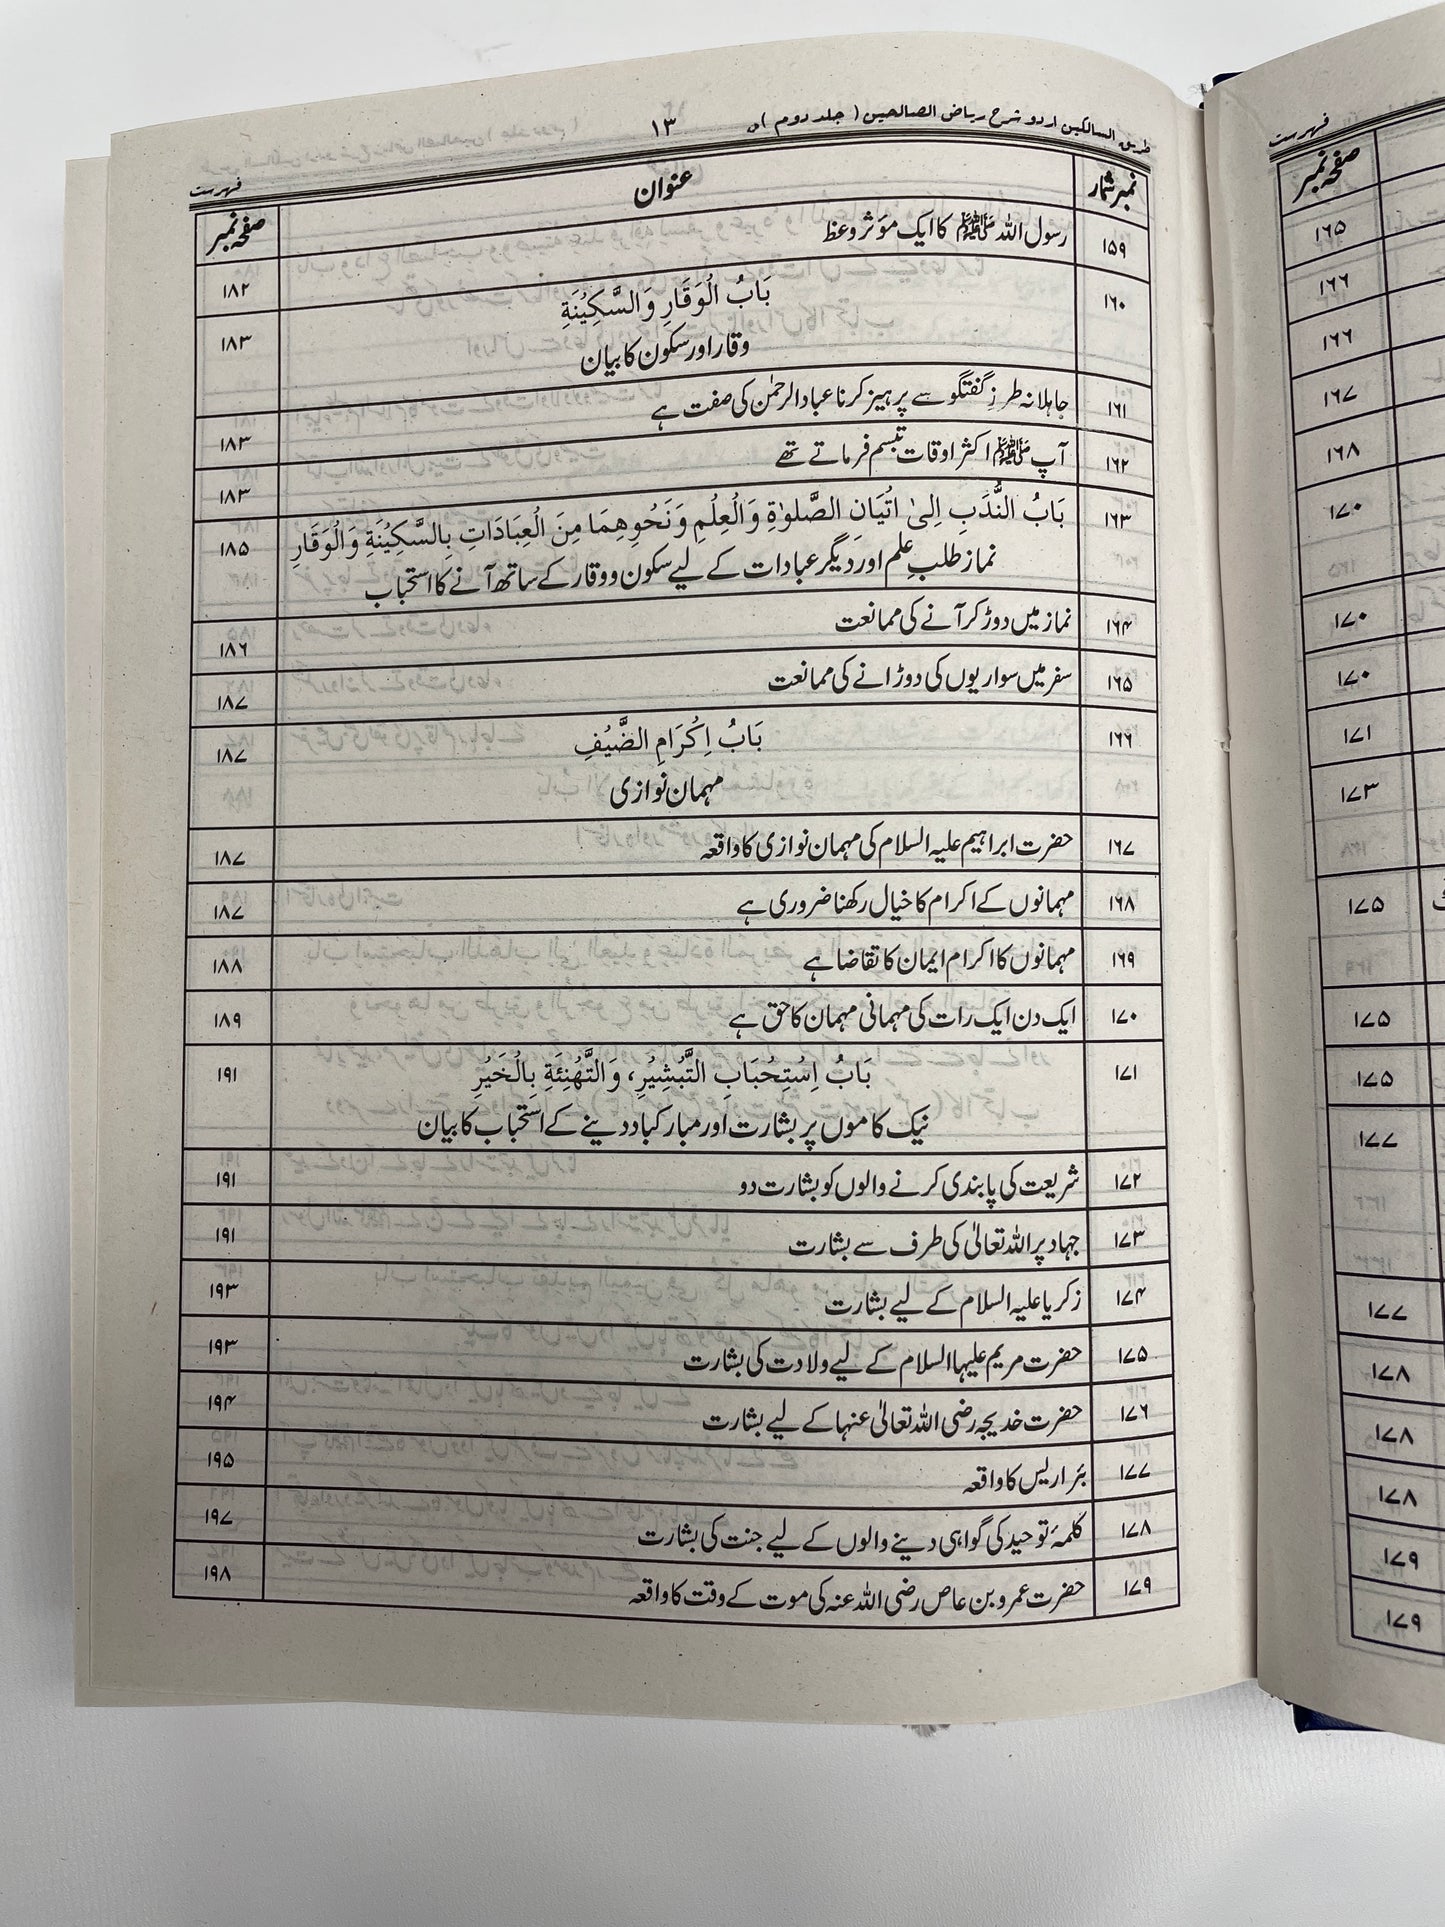 طریق السالکین اردو شرح ریاض الصالحین (جلد دوم) ۱۳ فہرست
نمبر شمار عنوان صفحہ نمبر
۱۵۹ رسول اللہ ﷺ کا ایک مؤثر وعظ ۱۸۲
۱۶۰ بَابُ الْوَقَارِ وَالسَّكِيْنَةِ ۱۸۳
وقار اور سکون کا بیان
۱۶۱ جاہلانہ طرزِ گفتگو سے پرہیز کرنا عباد الرحمٰن کی صفت ہے ۱۸۳
۱۶۲ آپ ﷺ اکثر اوقات تبسم فرماتے تھے ۱۸۳
۱۶۳ بَابُ النُّدَبِ اِلیٰ اتْيَانِ الصَّلوٰةِ وَالْعِلْمِ وَنَحْوِهِمَا مِنَ الْعِبَادَاتِ بِالسَّكِيْنَةِ وَالْوَقَارِ ۱۸۵
نماز طلبِ علم اور دیگر عبادات کے لیے سکون ووقار کے ساتھ آنے کا استحباب
۱۶۴ نماز میں دوڑ کر آنے کی ممانعت ۱۸۶
۱۶۵ سفر میں سواریوں کی دوڑانے کی ممانعت ۱۸۷
۱۶۶ بَابُ اِكْرَامِ الضَّيْفِ ۱۸۷
مہمان نوازی
۱۶۷ حضرت ابراہیم علیہ السلام کی مہمان نوازی کا واقعہ ۱۸۷
۱۶۸ مہمانوں کے اکرام کا خیال رکھنا ضروری ہے ۱۸۷
۱۶۹ مہمانوں کا اکرام ایمان کا تقاضا ہے ۱۸۸
۱۷۰ ایک دن ایک رات کی مہمانی مہمان کا حق ہے ۱۸۹
۱۷۱ بَابُ اِسْتِحْبَابِ التَّبْشِيْرِ، وَالتَّهْنِئَةِ بِالْخَيْرِ ۱۹۱
نیک کاموں پر بشارت اور مبارکباد دینے کے استحباب کا بیان
۱۷۲ شریعت کی پابندی کرنے والوں کو بشارت دو ۱۹۱
۱۷۳ جہاد پر اللہ تعالیٰ کی طرف سے بشارت ۱۹۱
۱۷۴ زکریا علیہ السلام کے لیے بشارت ۱۹۳
۱۷۵ حضرت مریم علیہا السلام کے لیے ولادت کی بشارت ۱۹۳
۱۷۶ حضرت خدیجہ رضی اللہ تعالیٰ عنہا کے لیے بشارت ۱۹۴
۱۷۷ بئر اریس کا واقعہ ۱۹۵
۱۷۸ کلمۂ توحید کی گواہی دینے والوں کے لیے جنت کی بشارت ۱۹۷
۱۷۹ حضرت عمرو بن عاص رضی اللہ عنہ کی موت کے وقت کا واقعہ ۱۹۸
فہرست
صفحہ نمبر
۱۶۵
۱۶۶
۱۶۶
۱۶۷
۱۶۸
۱۷۰
۱۷۰
۱۷۰
۱۷۱
۱۷۳
۱۷۵
۱۷۵
۱۷۵
۱۷۷
۱۷۷
۱۷۸
۱۷۸
۱۷۸
۱۷۹
۱۷۹